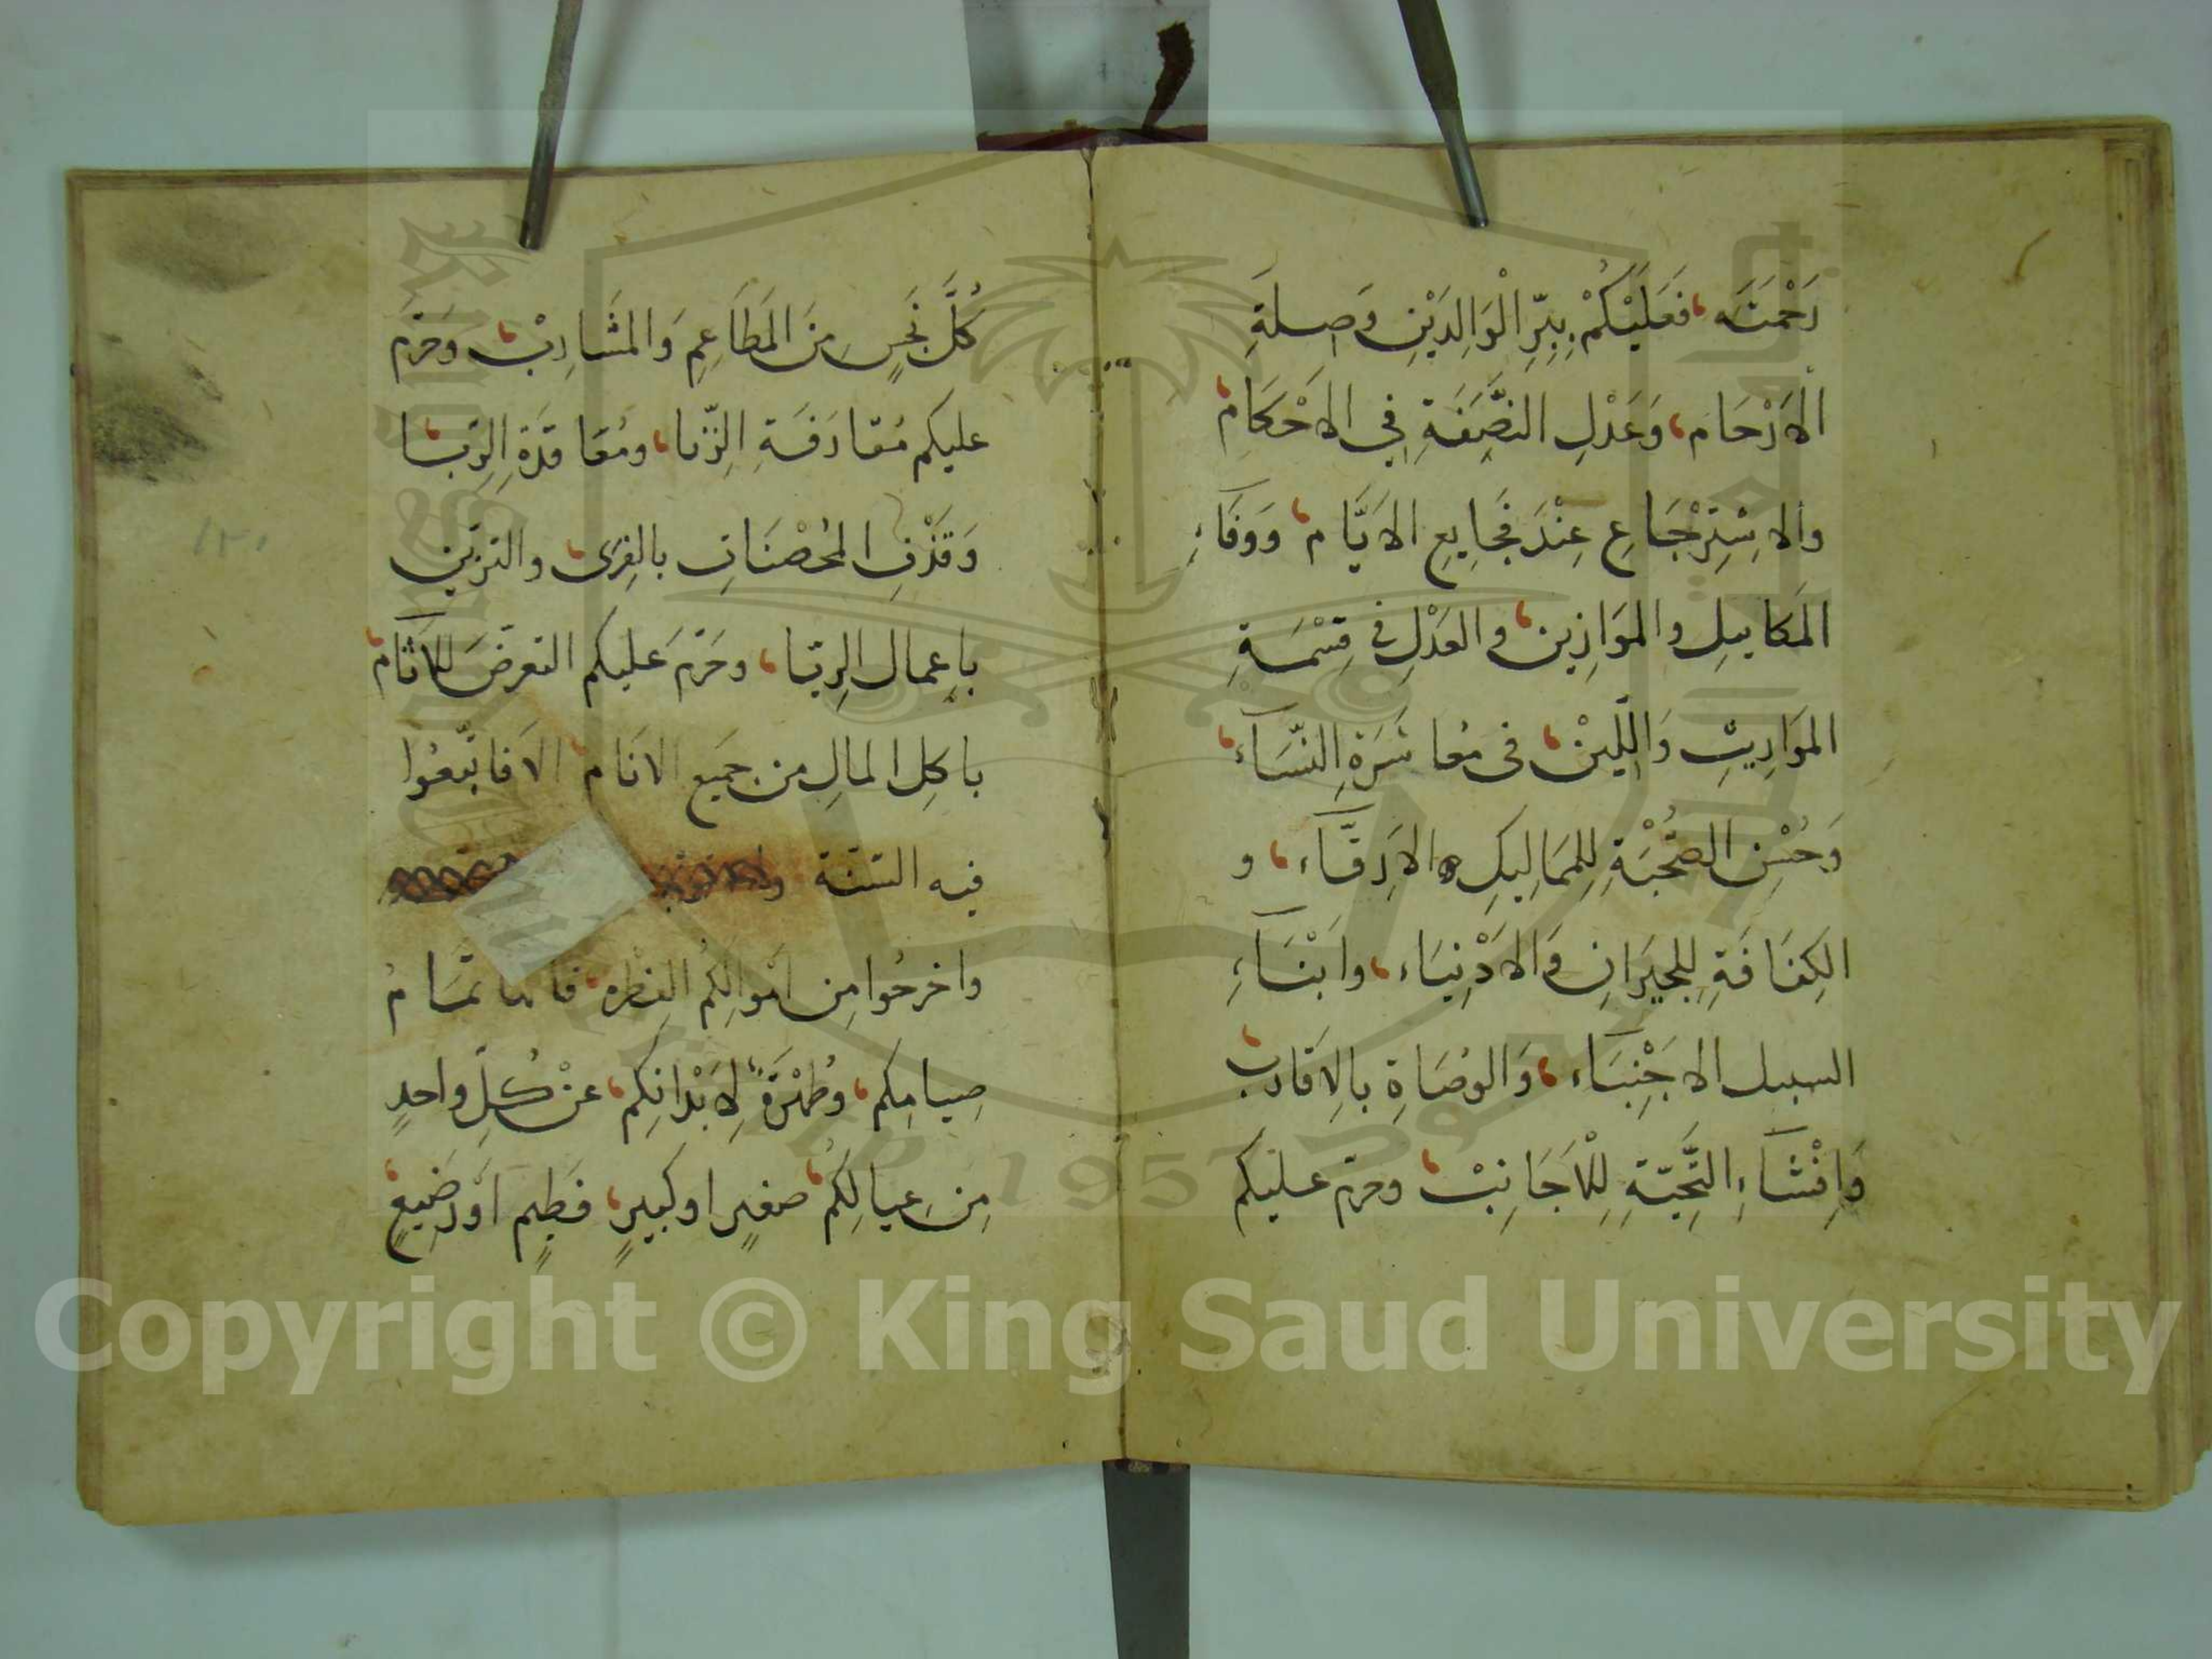 رَحْمَتَه، فَعَلَيْكُمْ بِبِرِّ الْوَالِدَيْنِ وَصِلَةِ
الاَرْحَامِ، وَعَدْلِ النَّصِفَةِ فِي الاَحْكَامِ،
والاِسْتِرْجَاعِ عِنْدَ فَجَايِعِ الاَيَّامِ، وَوَفَاءِ
المَكاييلِ والموَازِين، والعَدْلِ في قِسْمَةِ
الموَارِيثِ وَاللِّينْ، في مُعاشَرَةِ النِّسَآء،
وَحُسْنِ الصُّحْبَةِ لِلمَمَالِيكِ والاَرِقَّآء، و
الكَفَافَةِ لِلجيرَانِ وَالاَدْنِيَاء، وابْنَآءِ
السبيل الاجْنِبَآء، وَالوُصَاةِ بِالاَقَارب،
وَاِفْشَآءِ التَّحِيَّةِ لِلْاَجَانِبْ، وحرّم عليكم
كُلَّ نَجِسٍ مِنَ المَطَاعِمِ وَالمَشَارِبْ، وَحَرّمَ
عليكم مُقارَفَةِ الزِّنا، ومُعَاقَدَةِ الرِّبا،
وَقَذْفِ المُحْصَنَاتِ بالفِرَى، والتزيّن
باِعمال الرِيّا، وحَرّمَ عليكم التعرضَ للآثام،
باكِل المالِ من جَميَع الانَام، الاَ فاتّبِعُوا
فيه السّنّة
واخرجُوا مِن اَموالِكُم الفِطْره، فانها تمَامُ
صِيامِكم، وطُهْرَةً لِاَبْدانِكم، عنْ كُلِّ واحدٍ
مِنَ عِيالِكُم، صغيرٍ او كبيرٍ، فَطِيمٍ اَوْرَضِيعٍ،
١٢٠
Copyright © King Saud University
1957